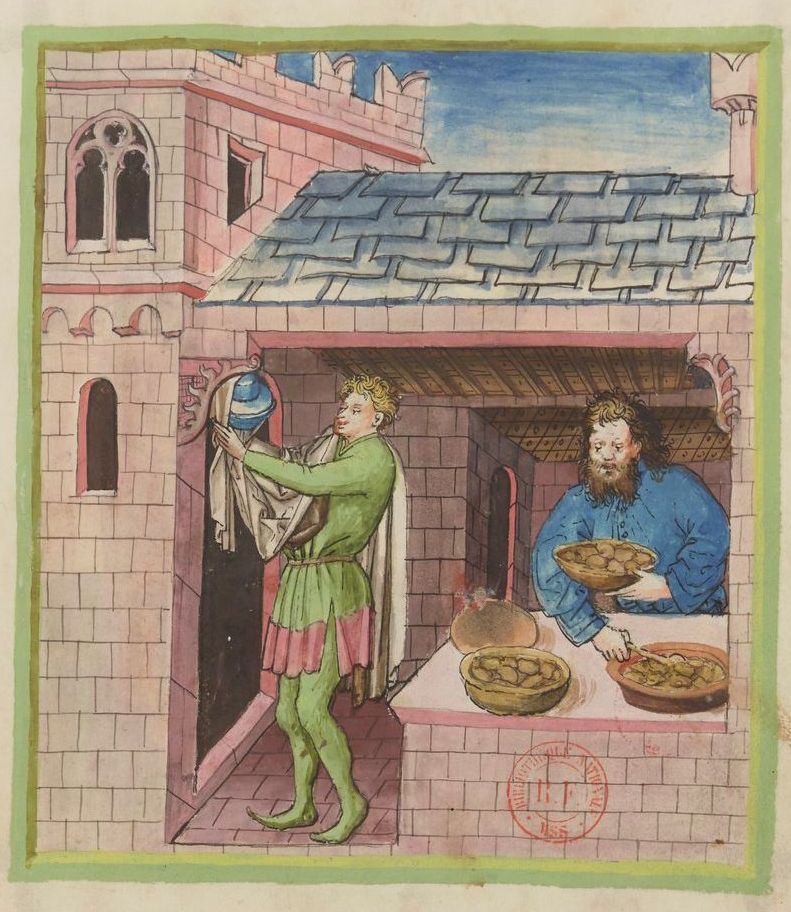 BIBLIOTHÈQUE NATIONALE
R.F
MSS